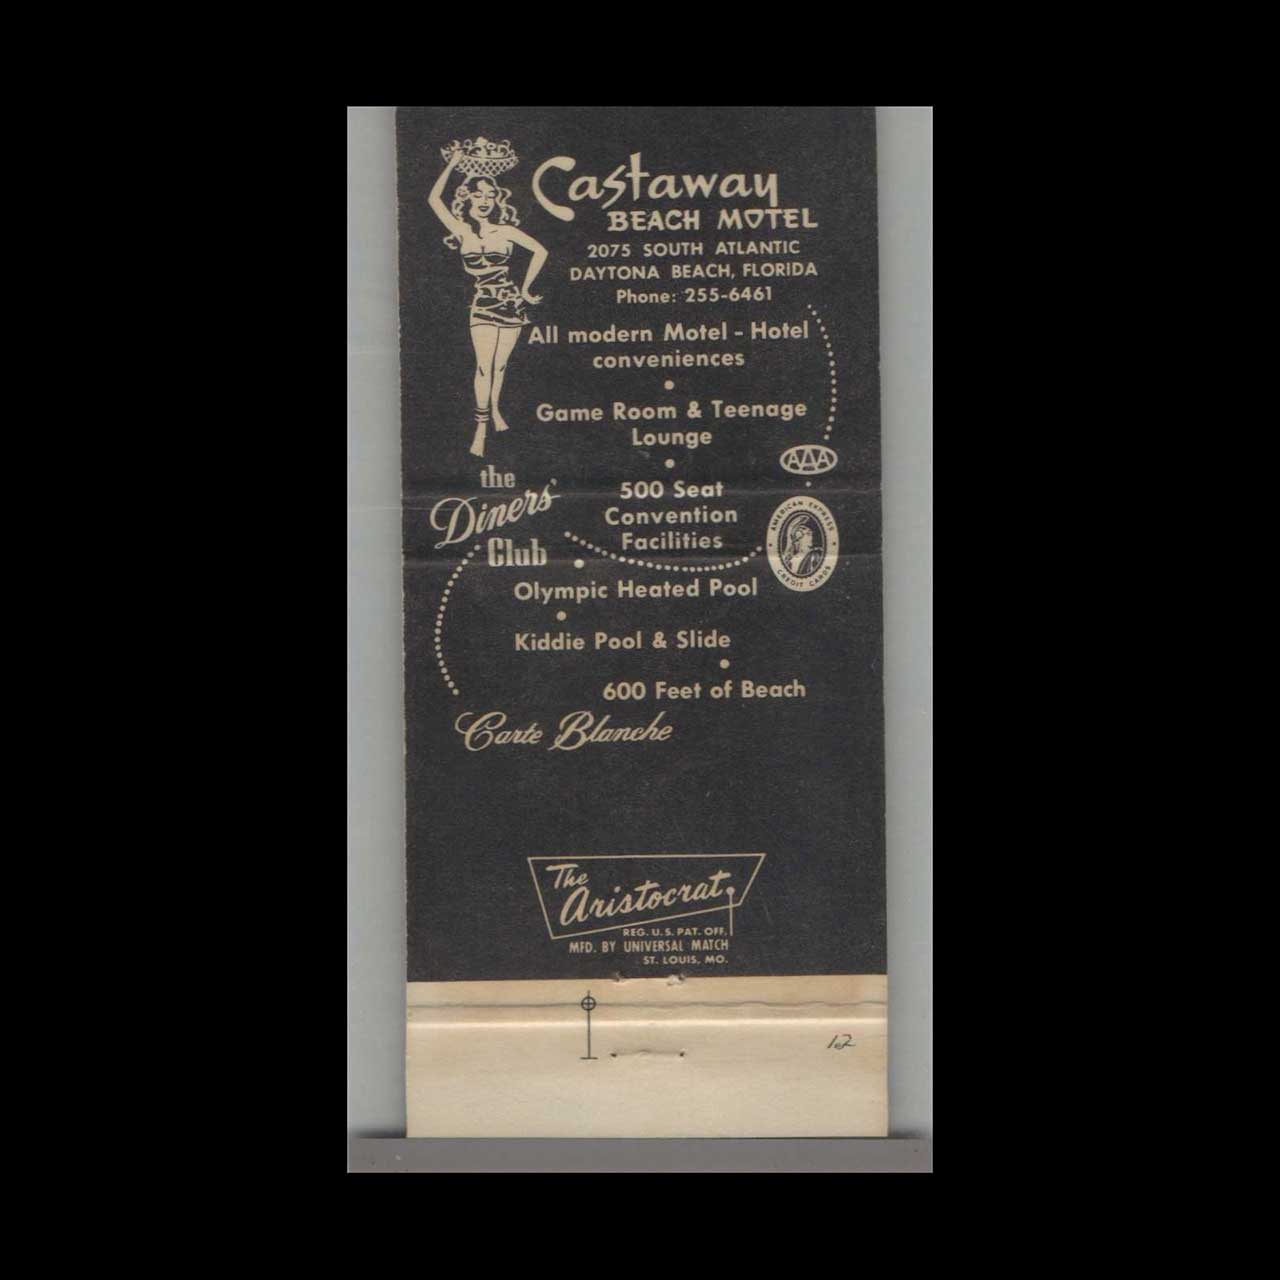 Castaway
BEACH MOTEL
2075 SOUTH ATLANTIC
DAYTONA BEACH, FLORIDA
Phone: 255-6461
All modern Motel - Hotel
conveniences
Game Room & Teenage
Lounge
AAA
the
Diners'
Club
500 Seat
Convention
Facilities
AMERICAN EXPRESS
CREDIT CARDS
Olympic Heated Pool
Kiddie Pool & Slide
600 Feet of Beach
Carte Blanche
The
Aristocrat
REG. U.S. PAT. OFF.
MFD. BY UNIVERSAL MATCH
ST. LOUIS, MO.
12